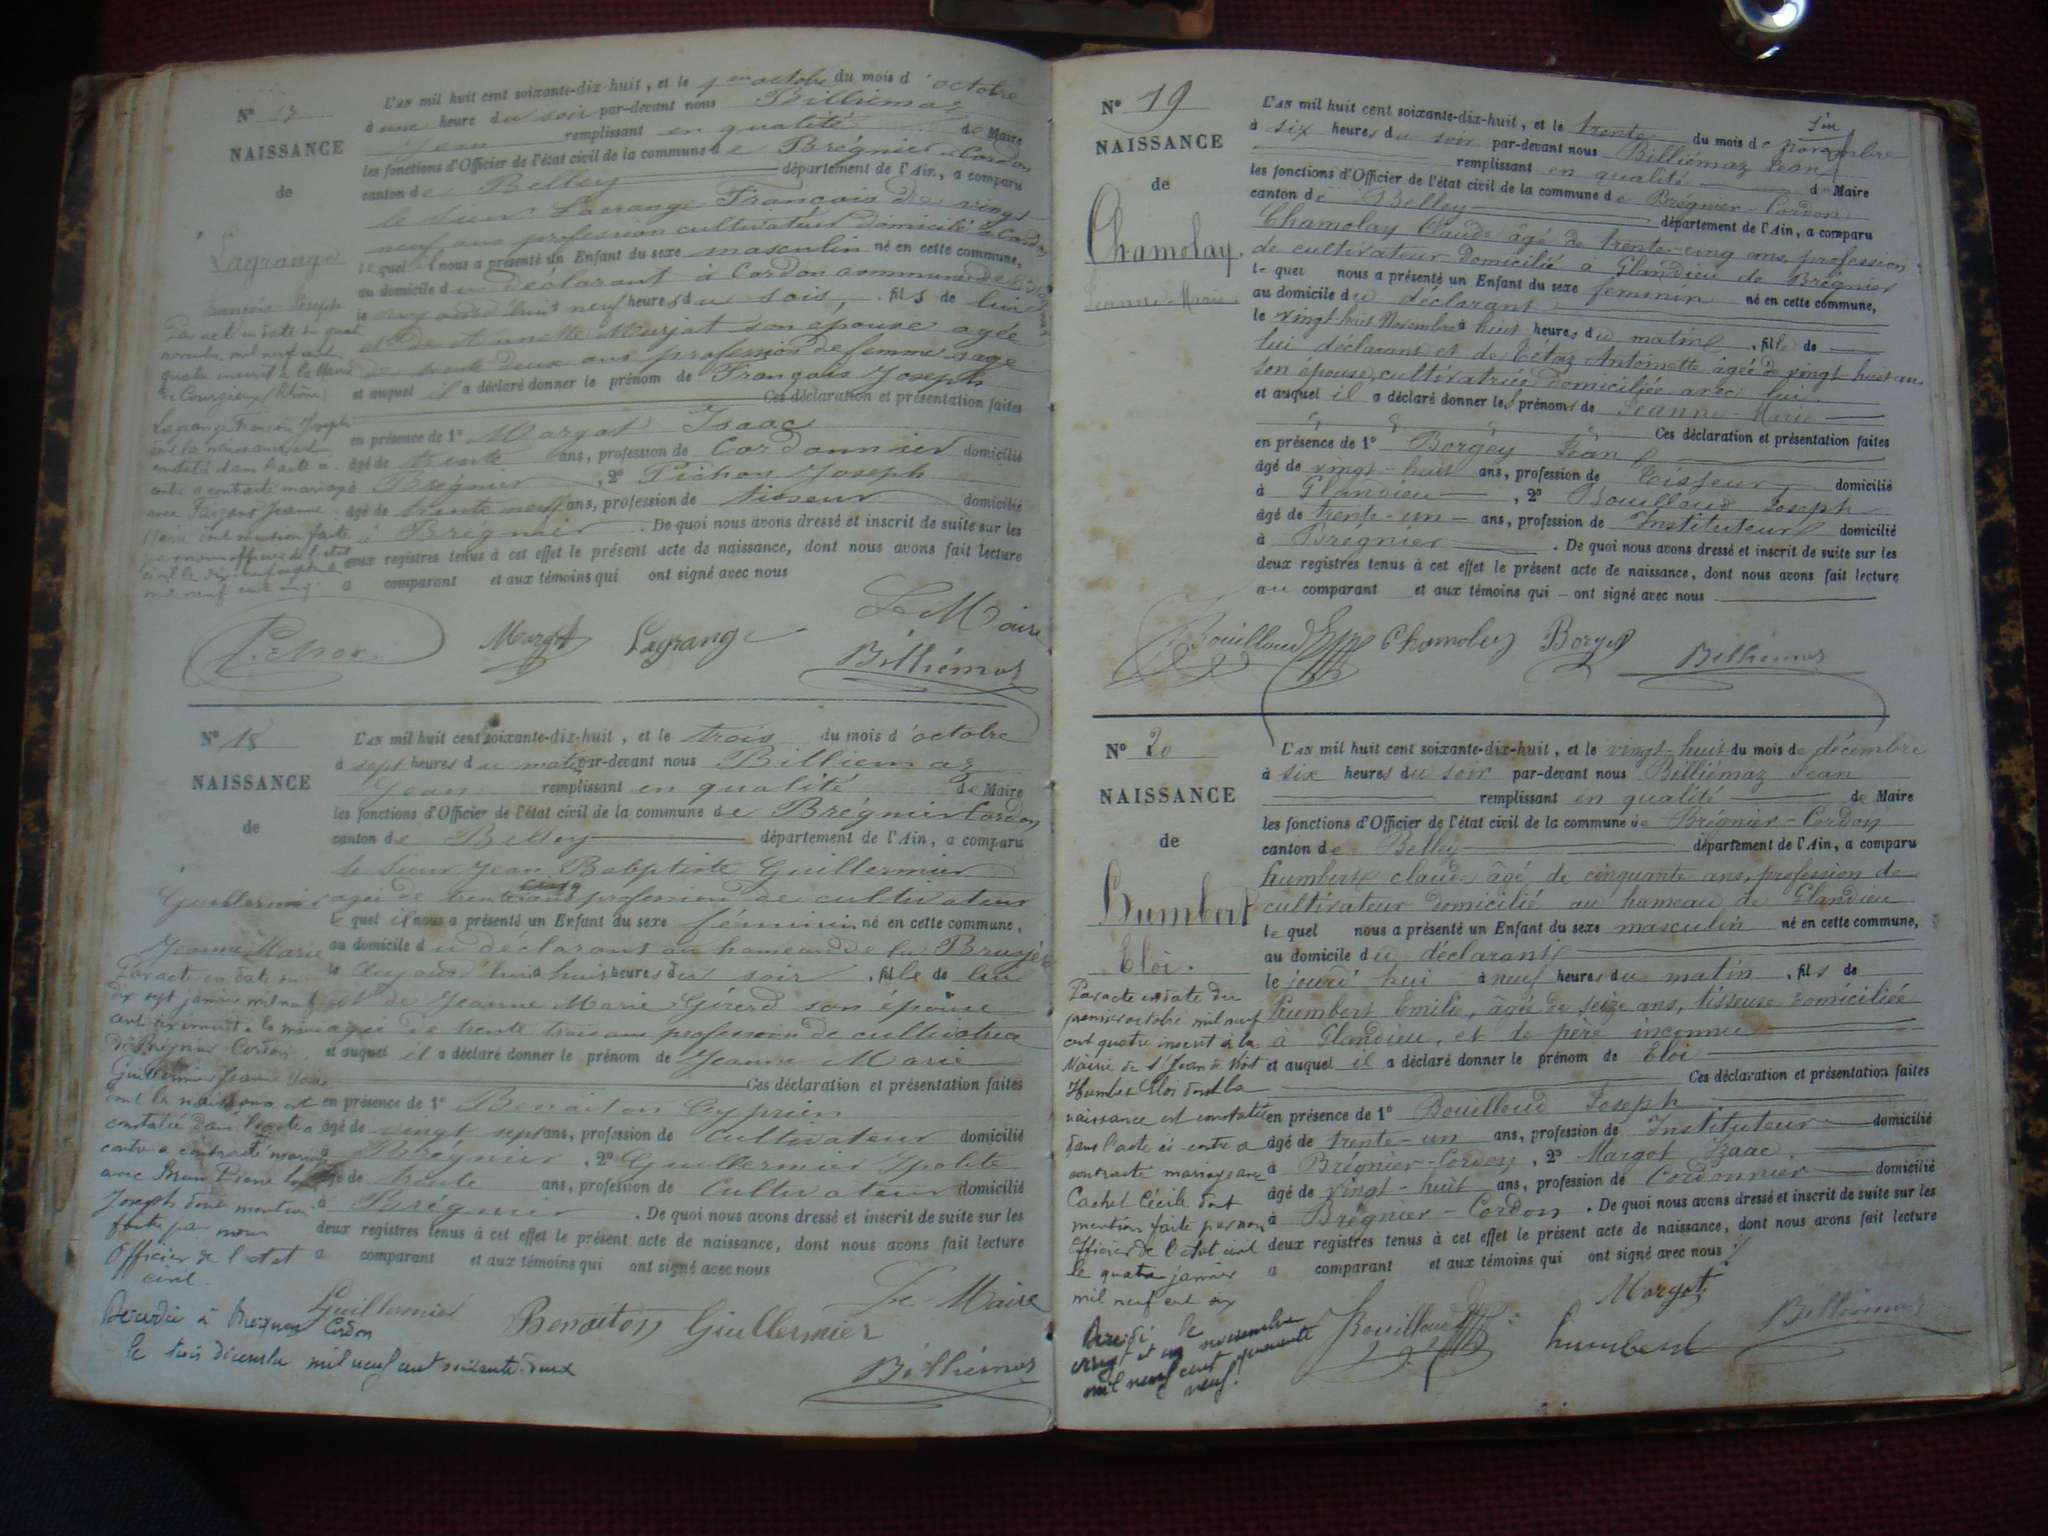 N°
NAISSANCE
de
Lagrange
François Joseph
L'AN mil huit cent soixante-dix-huit, et le 1er octobre du mois d'octobre
à une heure du soir par-devant nous Billiémaz
Jean remplissant en qualité de Maire
les fonctions d'Officier de l'état civil de la commune de Brégnier-Cordon
canton de Belley département de l'Ain, a comparu
le sieur Lagrange François de vingt
neuf ans profession cultivateur domicilié à Cordon
lequel il nous a présenté un Enfant du sexe masculin né en cette commune,
au domicile du déclarant à Cordon commune de
le aujourd'hui neuf heures du soir, fils de lui
et de Annette Murjat son épouse agée
de trente deux ans profession de femme sage
et auquel il a déclaré donner le prénom de François Joseph
Ces déclaration et présentation faites
en présence de 1° Margot Isaac
âgé de trente ans, profession de Cordonnier domicilié
à Brégnier, 2° Pichon Joseph
âgé de trente neuf ans, profession de tisseur domicilié
à Brégnier. De quoi nous avons dressé et inscrit de suite sur les
deux registres tenus à cet effet le présent acte de naissance, dont nous avons fait lecture
a comparant et aux témoins qui ont signé avec nous
Par acte en date du quatre
novembre mil neuf cent
quatre inscrit à la Mairie
de Courzieu (Rhône)
Lagrange François Joseph
dont la naissance est
constatée dans l'acte ci-
contre a contracté mariage
avec Jeanne
Marie dont mention faite
par nous officier de l'état
civil le dix neuf
mil neuf cent
Le Maire
Pichon Margot Lagrange Billiémaz
N° 18
NAISSANCE
de
Guillermier
Jeanne Marie
L'AN mil huit cent soixante-dix-huit, et le trois du mois d'octobre
à sept heures du matin par-devant nous Billiemaz
Jean remplissant en qualité de Maire
les fonctions d'Officier de l'état civil de la commune de Brégnier Cordon
canton de Belley département de l'Ain, a comparu
le sieur Jean Babptiste Guillermier
agé de trente cinq ans profession de cultivateur
lequel il nous a présenté un Enfant du sexe féminin né en cette commune,
au domicile du déclarant au hameau de la Bruyère
le aujourd'hui à huit heures du soir, fille de lui
et de Jeanne Marie Gérerd son épouse
agée de trente trois ans profession de cultivatrice
et auquel il a déclaré donner le prénom de Jeanne Marie
Ces déclaration et présentation faites
en présence de 1° Benaiton Cyprien
âgé de vingt sept ans, profession de cultivateur domicilié
à Brégnier, 2° Guillermier Ipolite
âgé de trente ans, profession de Cultivateur domicilié
à Brégnier. De quoi nous avons dressé et inscrit de suite sur les
deux registres tenus à cet effet le présent acte de naissance, dont nous avons fait lecture
a comparant et aux témoins qui ont signé avec nous
Par acte en date du
dix sept janvier mil neuf
cent six inscrit à la mairie
de Brégnier Cordon
Guillermier Jeanne Marie
dont la naissance est
constatée dans l'acte ci
contre a contracté mariage
avec Pierre
Joseph dont mention
faite par nous
Officier de l'état
civil.
Le Maire
Guillermier Benaiton Guillermier
Billiémaz
Décédée à Brégnier Cordon
le trois décembre mil neuf cent soixante deux
N° 19
NAISSANCE
de
Chamolay.
Jeanne-Marie
L'AN mil huit cent soixante-dix-huit, et le trente du mois de novembre
à six heures du soir par-devant nous Billiémaz Jean
remplissant en qualité de Maire
les fonctions d'Officier de l'état civil de la commune de Brégnier-Cordon
canton de Belley département de l'Ain, a comparu
Chamolay Claude âgé de trente-cinq ans, profession
de cultivateur domicilié à Glandieu de Brégnier
lequel nous a présenté un Enfant du sexe feminin né en cette commune,
au domicile du déclarant
le vingt huit Novembre à huit heures du matin, fille de
lui déclarant et de Tétaz Antoinette âgée de vingt huit ans
son épouse, cultivatrice domiciliée avec lui
et auquel il a déclaré donner les prénoms de Jeanne-Marie
Ces déclaration et présentation faites
en présence de 1° Borgey Jean
âgé de vingt-huit ans, profession de Tisseur, domicilié
à Glandieu, 2° Bouilloud Joseph
âgé de trente-un ans, profession de Instituteur domicilié
à Brégnier. De quoi nous avons dressé et inscrit de suite sur les
deux registres tenus à cet effet le présent acte de naissance, dont nous avons fait lecture
au comparant et aux témoins qui ont signé avec nous
Bouilloud Chamolay Borgey Billiémaz
N° 20
NAISSANCE
de
Humbert
Eloi.
L'AN mil huit cent soixante-dix-huit, et le vingt-huit du mois de décembre
à six heures du soir par-devant nous Billiémaz Jean
remplissant en qualité de Maire
les fonctions d'Officier de l'état civil de la commune de Brégnier-Cordon
canton de Belley département de l'Ain, a comparu
humbert claude âgé de cinquante ans, profession de
cultivateur domicilié au hameau de Glandieu
lequel nous a présenté un Enfant du sexe masculin né en cette commune,
au domicile du déclarant
le jourd'hui à neuf heures du matin, fils de
humbert Emilie, âgée de seize ans, tisseuse domiciliée
à Glandieu, et de père inconnu
et auquel il a déclaré donner le prénom de Eloi
Ces déclaration et présentation faites
en présence de 1° Bouilloud Joseph
âgé de trente-un ans, profession de Instituteur domicilié
à Brégnier-Cordon, 2° Margot Izaac
âgé de vingt-huit ans, profession de Cordonnier domicilié
à Brégnier-Cordon. De quoi nous avons dressé et inscrit de suite sur les
deux registres tenus à cet effet le présent acte de naissance, dont nous avons fait lecture
a comparant et aux témoins qui ont signé avec nous
Par acte en date du
premier octobre mil neuf
cent quatre inscrit à la
Mairie de St Jean de
Humbert Eloi dont la
naissance est constatée
dans l'acte ci-contre a
contracté mariage avec
Cachet Cécile dont
mention faite par nous
Officier de l'état civil
le quatre janvier
mil neuf cent six
Margot
Bouilloud humbert Billiémaz
Décédé le
vingt et un novembre
mil neuf cent quarante
neuf.